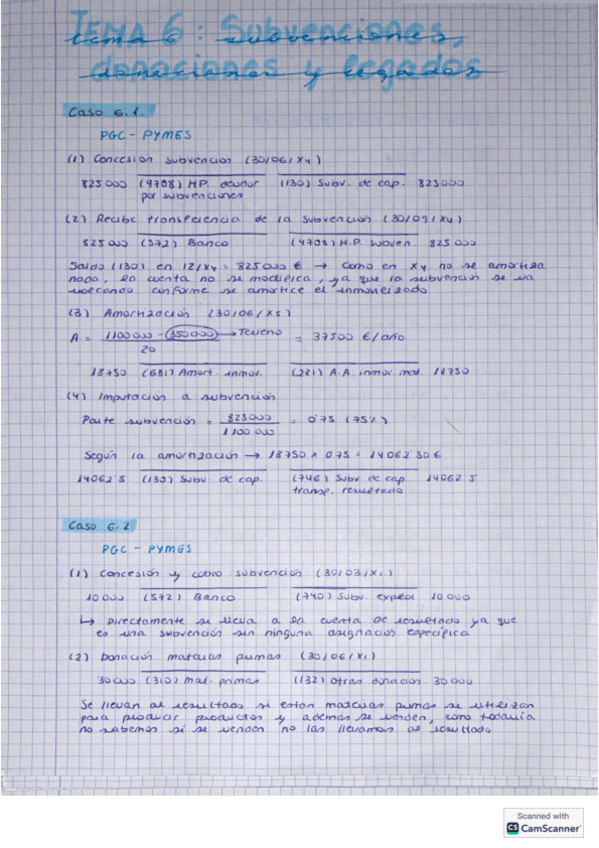 TEMA 6: Subvenciones,
donaciones y legados
Caso 6.1.
PGC - PYMES
(1) Concesión subvención (30/06/X4)
825 000 (4708) HP. deudor por subvenciones (130) Subv. de cap. 825000
(2) Recibe transferencia de la subvención (30/09/X4)
825 000 (572) Banco (4708) H.P. subven. 825 000
Saldo (130) en 12/X4 = 825 000 € → Como en X4 no se amortiza
nada, la cuenta no se modifica, ya que la subvención se va
conforme se amortice el inmovilizado
(3) Amortización (30/06/X5)
A = 1100 000 - (350 000) → Terreno / 20 = 37500 €/año
18750 (681) Amort. inmov. (281) A.A. inmov. mat. 18750
(4) Imputación a subvención
Parte subvención = 825000 / 1 100 000 = 0'75 (75%)
Según la amortización → 18750 x 0'75 = 14062'50 €
14062'5 (130) Subv. de cap. (746) Subv. de cap. transp. resultado 14062'5
Caso 6.2
PGC - PYMES
(1) Concesión y cobro subvención (30/03/X1)
10 000 (572) Banco (740) Subv. explot 10 000
↳ Directamente se lleva a la cuenta de resultado ya que
es una subvención sin ninguna asignación específica
(2) Donación materias primas (30/06/X1)
30 000 (310) Mat. primas (132) Otras donacion 30 000
Se llevan al resultado si estan materias primas se utilizan
para producir productos y además se venden, como todavía
no sabemos si se venden no las llevamos al resultado
Scanned with
CS CamScanner